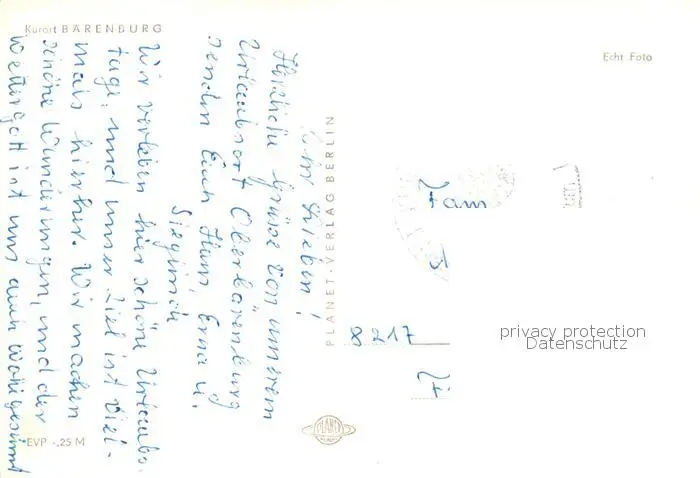 Kurort BÄRENBURG
Ihr Lieben!
Herzliche Grüsse von unserem
Urlaubsort Oberbärenburg
senden Euch Hans, Erna u.
Sieglinde
Wir verleben hier schöne Urlaubs-
tage, und unser Ziel ist viel-
mals hierher. Wir machen
schöne Wanderungen, und der
Wettergott ist uns auch wohlgesinnt
EVP -,25 M
PLANET-VERLAG BERLIN
PLANET
Echt Foto
Fam
8217
privacy protection
Datenschutz